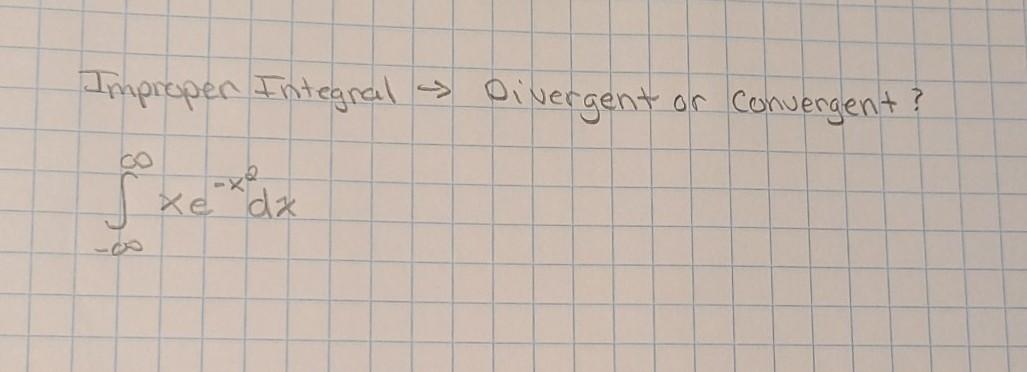 Improper Integral → Divergent or Convergent?
∫_{-∞}^{∞} xe^{-x²}dx